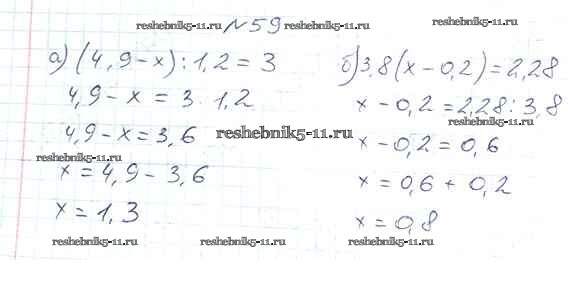 reshebnik5-11.ru
№59
reshebnik5-11.ru
а) (4,9-x):1,2=3
4,9-x=3·1,2
4,9-x=3,6
reshebnik5-11.ru
x=4,9-3,6
x=1,3
reshebnik5-11.ru
reshebnik5-11.ru
б) 3,8(x-0,2)=2,28
x-0,2=2,28:3,8
reshebnik5-11.ru
x-0,2=0,6
x=0,6+0,2
x=0,8
reshebnik5-11.ru
reshebnik5-11.ru